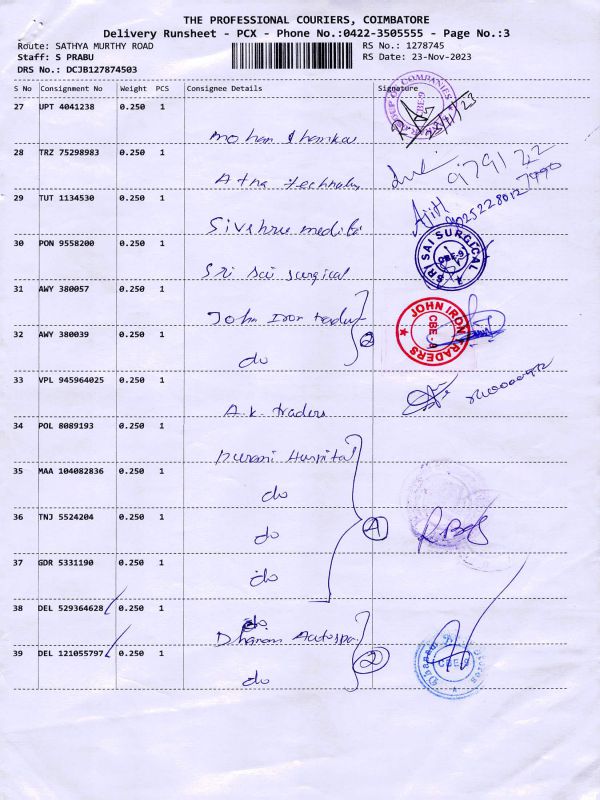 THE PROFESSIONAL COURIERS, COIMBATORE
Delivery Runsheet - PCX - Phone No.:0422-3505555 - Page No.:3
Route: SATHYA MURTHY ROAD
RS No.: 1278745
Staff: S PRABU
RS Date: 23-Nov-2023
DRS No.: DCJB127874503
S No Consignment No Weight PCS Consignee Details Signature
27 UPT 4041238 0.250 1
Mohan
28 TRZ 75298983 0.250 1
Atna Technology
29 TUT 1134530 0.250 1
Ajith
30 PON 9558200 0.250 1
Sri Sai Surgical
SRI SAI SURGICAL CBE-9
31 AWY 380057 0.250 1
John Iron traders
2
JOHN IRON TRADERS CBE - A
32 AWY 380039 0.250 1
do
33 VPL 945964025 0.250 1
A.K. traders
34 POL 8089193 0.250 1
Hospital
35 MAA 104082836 0.250 1
do
36 TNJ 5524204 0.250 1
do
4
37 GDR 5331190 0.250 1
do
38 DEL 529364628 0.250 1
Dharani Autospa
2
39 DEL 121055797 0.250 1
do
CBE-9